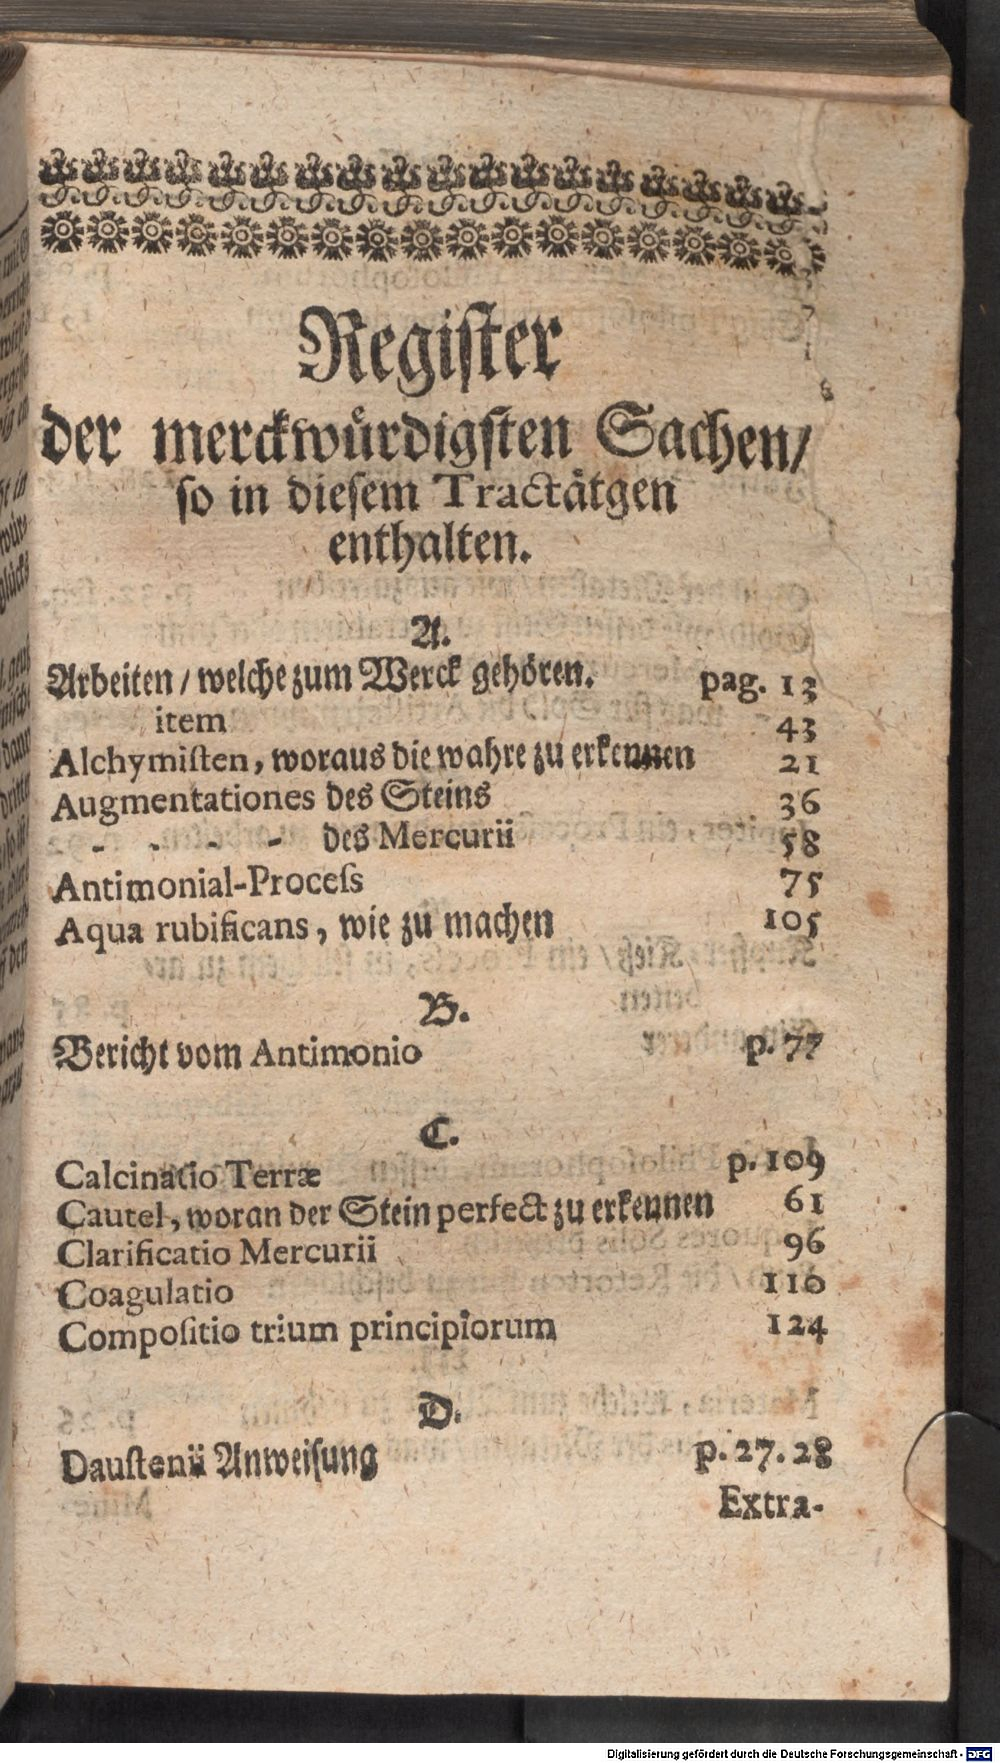 Register
der merckwürdigsten Sachen/
so in diesem Tractätgen
enthalten.
A.
Arbeiten / welche zum Werck gehören. pag. 13
item 43
Alchymisten, woraus die wahre zu erkennen 21
Augmentationes des Steins 36
- - - - des Mercurii 58
Antimonial-Process 75
Aqua rubificans, wie zu machen 105
B.
Bericht vom Antimonio p. 77
C.
Calcinatio Terræ p. 109
Cautel, woran der Stein perfect zu erkennen 61
Clarificatio Mercurii 96
Coagulatio 110
Compositio trium principiorum 124
D.
Daustenii Anweisung p. 27. 28
Extra-
Digitalisierung gefördert durch die Deutsche Forschungsgemeinschaft - DFG